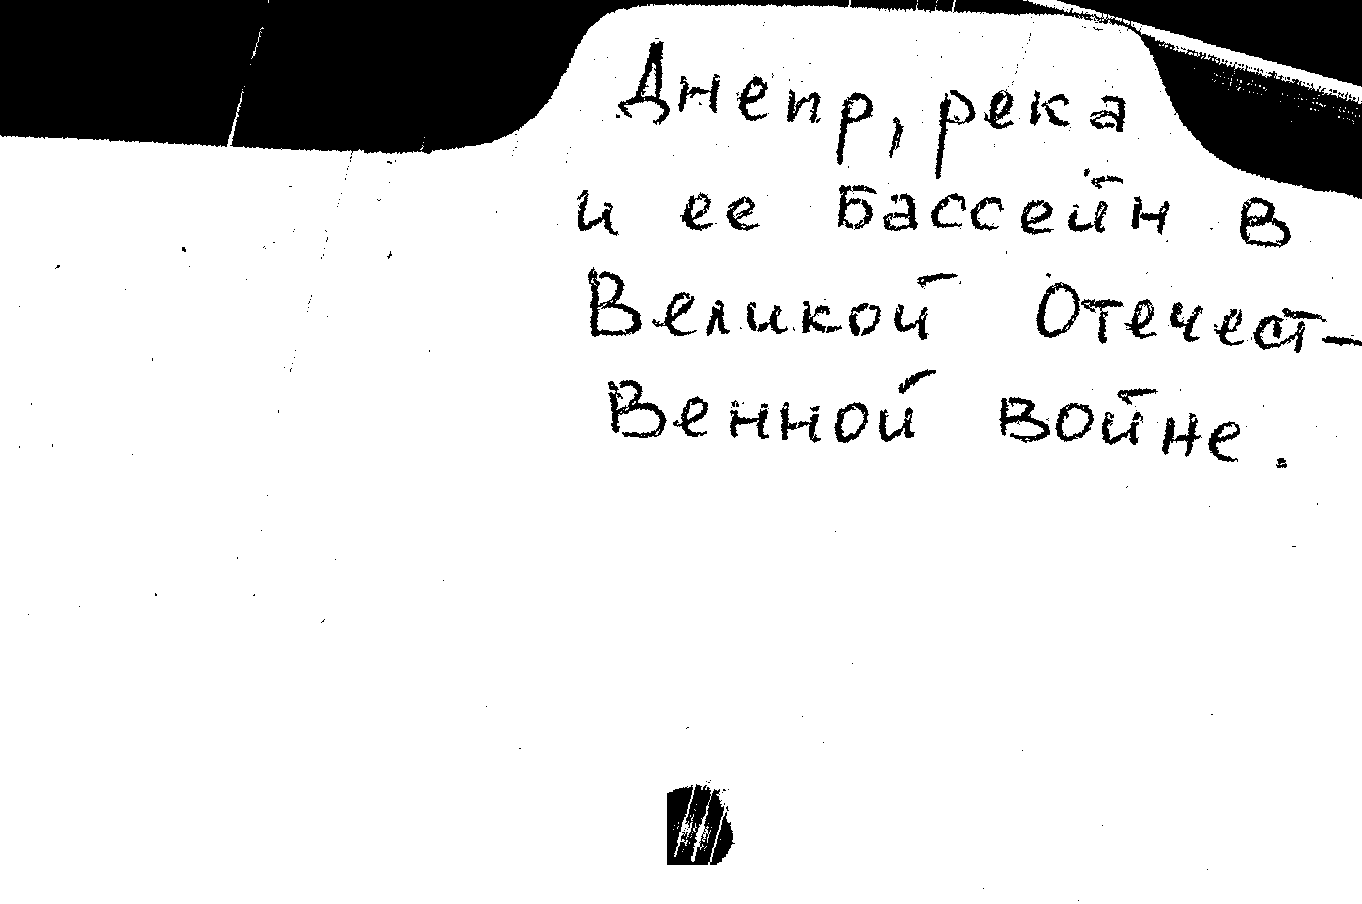 Днепр, река
и ее бассейн в
Великой Отечест-
венной войне.